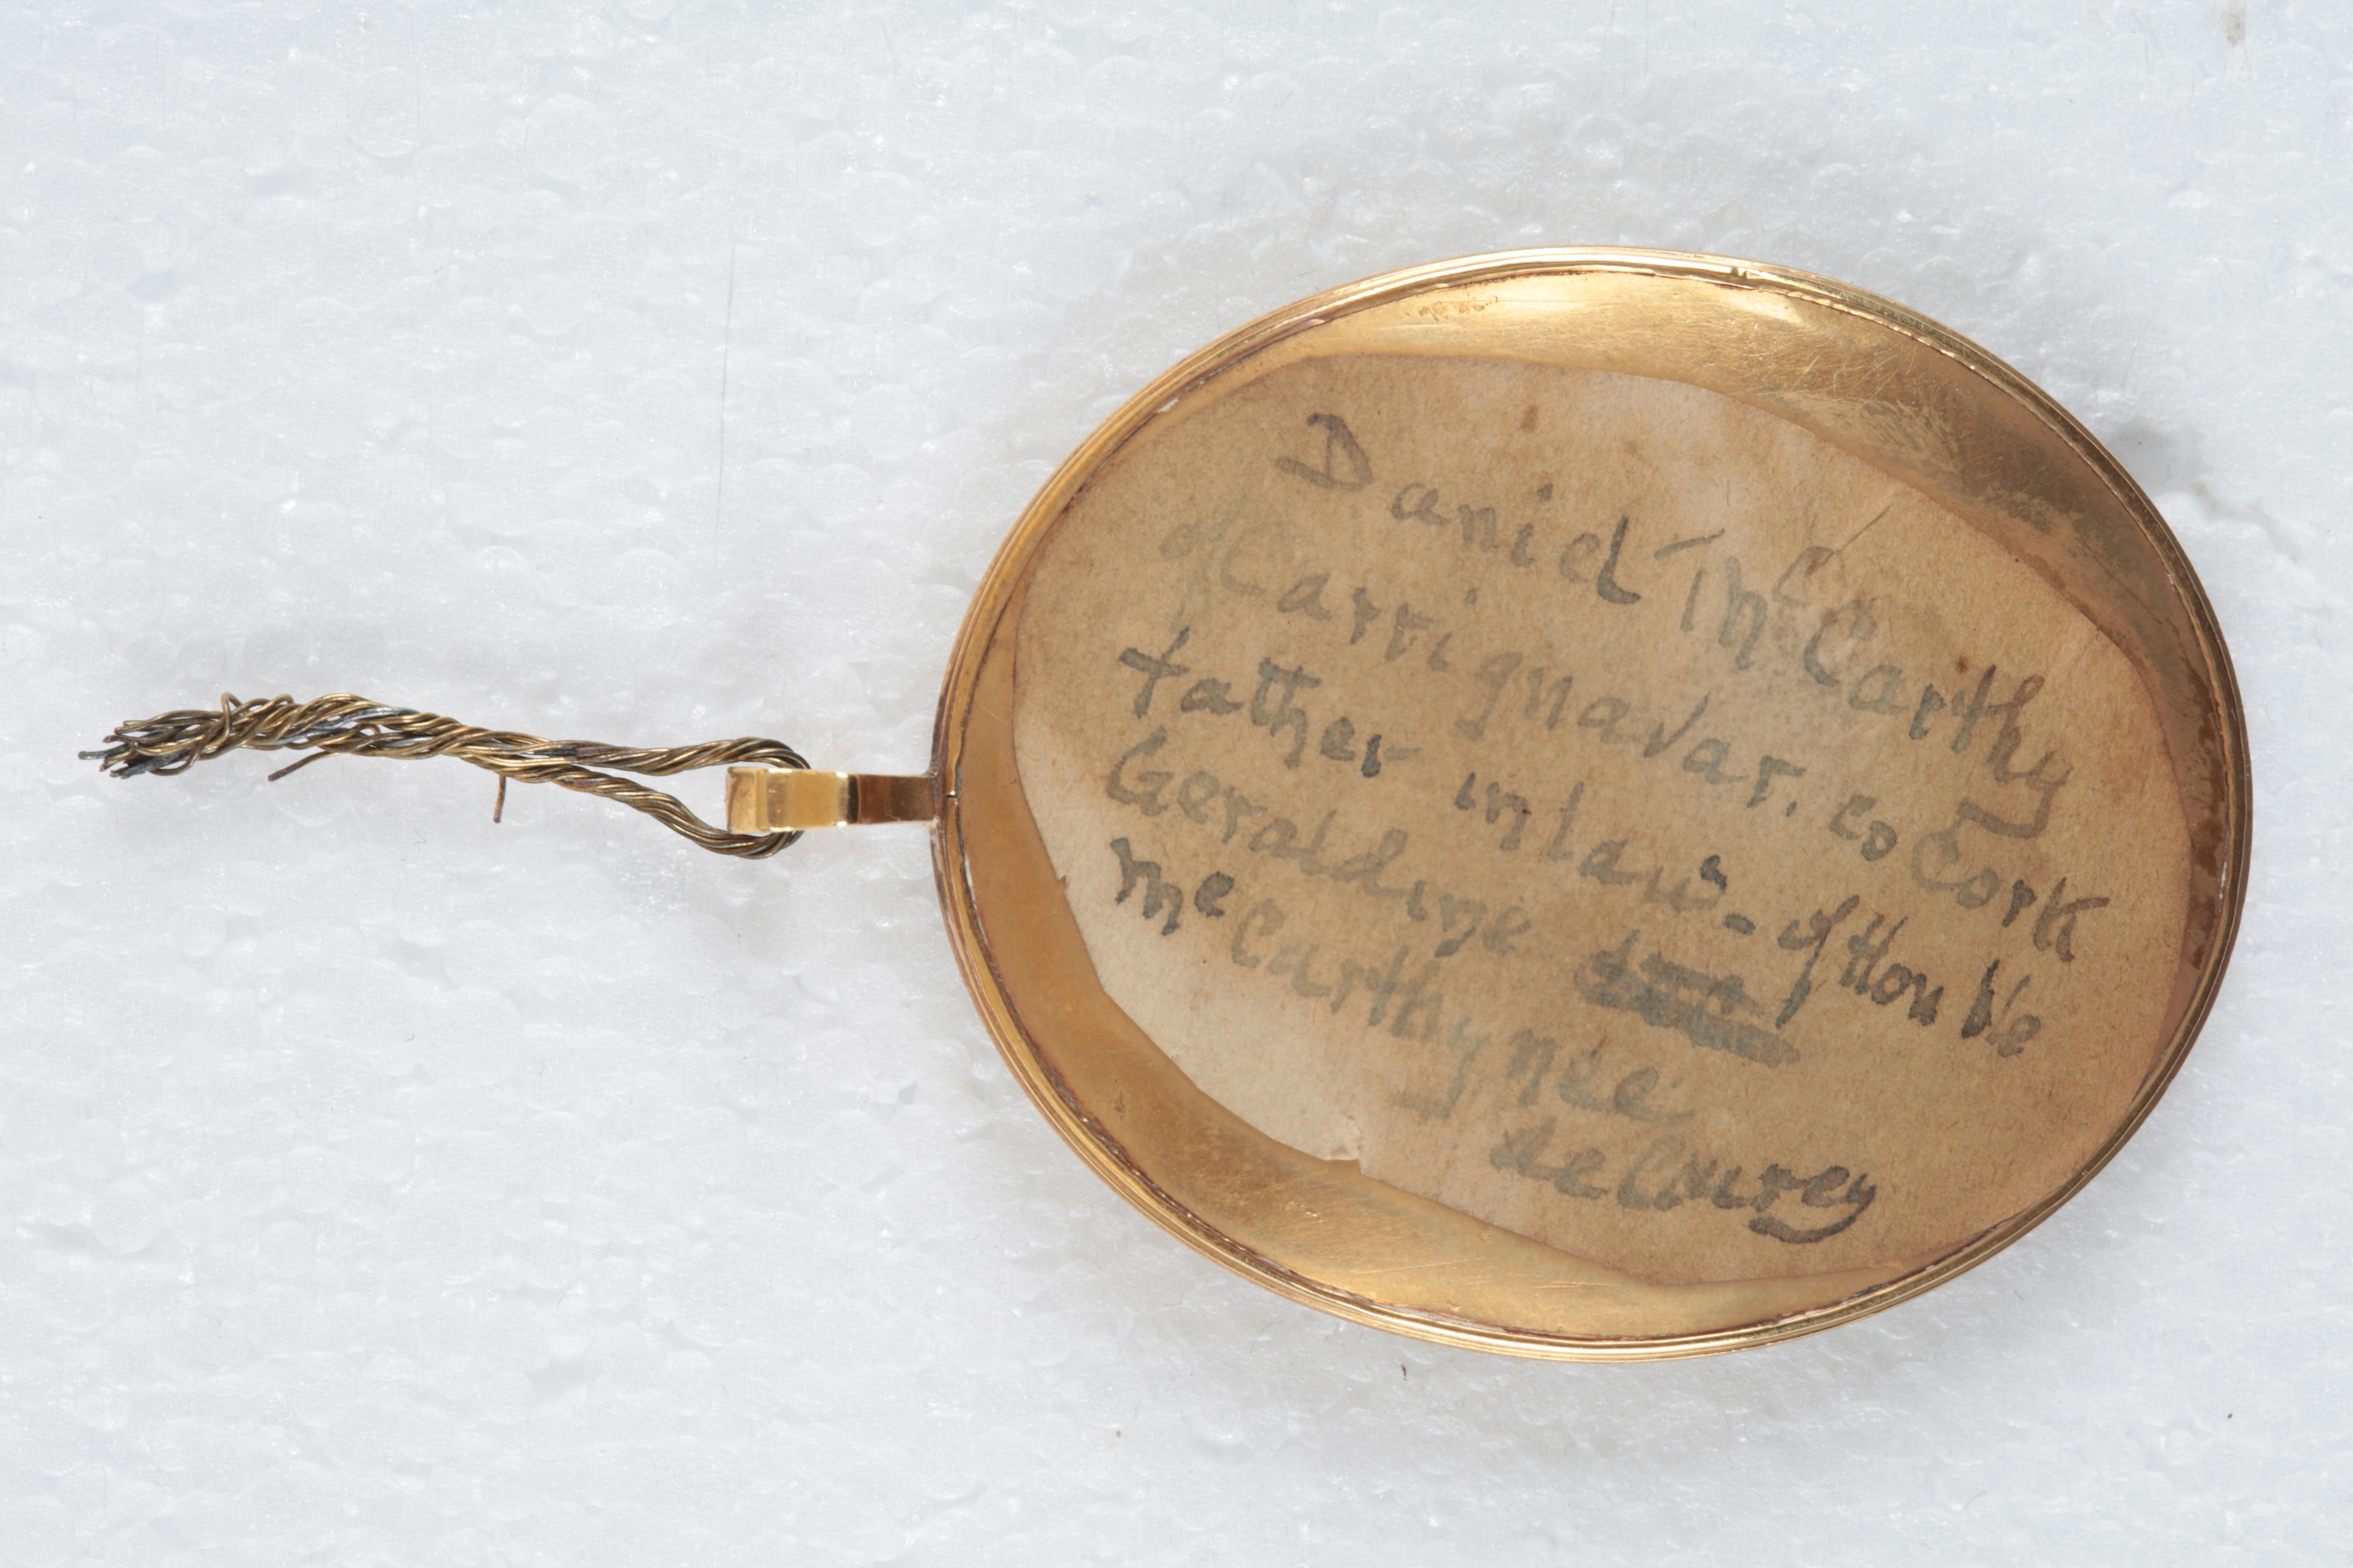 Daniel McCarthy
of Carrignavar. Co Cork
father in law - of Honble
Geraldine
McCarthy nee
de Courcy